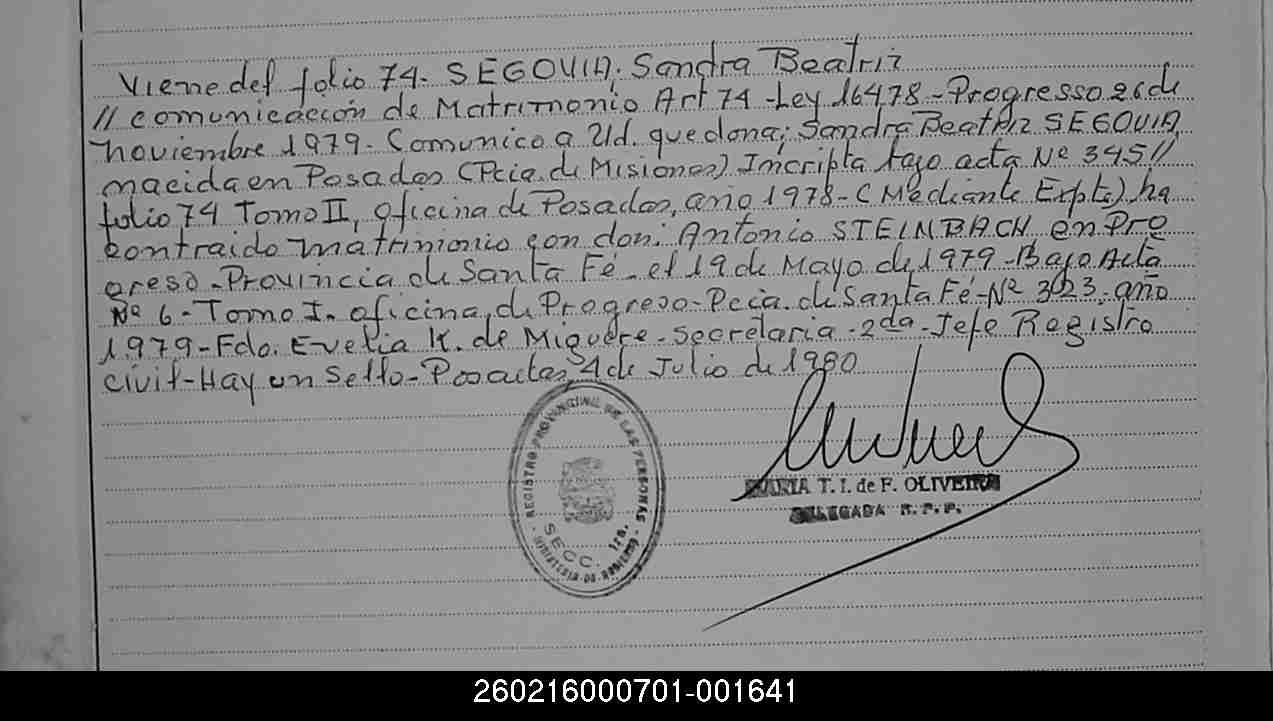 Viene del folio 74- SEGOVIA. Sandra Beatriz
// comunicación de Matrimonio Art 74 - Ley 16478 - Progresso 26 de
noviembre 1979- Comunico a Ud. que dona; Sandra Beatriz SEGOVIA,
nacida en Posadas (Pcia. de Misiones) Incripta bajo acta Nº 345//
folio 74 Tomo II, oficina de Posadas, año 1978- (Mediante Expte) ha
contraido matrimonio con don: Antonio STEINBACH en Pro
greso - Provincia de Santa Fé - el 19 de Mayo de 1979 - Bajo Acta
Nº 6 - Tomo I. oficina de Progreso - Pcia. de Santa Fé - Nº 323. año
1979 - Fdo. Evelia K. de Miguere - secretaria - 2da - Jefe Registro
civil - Hay un Sello - Posadas, 4 de Julio de 1980
REGISTRO PROVINCIAL DE LAS PERSONAS
SECC. 1ra.
MINISTERIO DE GOBIERNO
MARIA T. I. de F. OLIVEIRA
DELEGADA R. P. P.
260216000701-001641